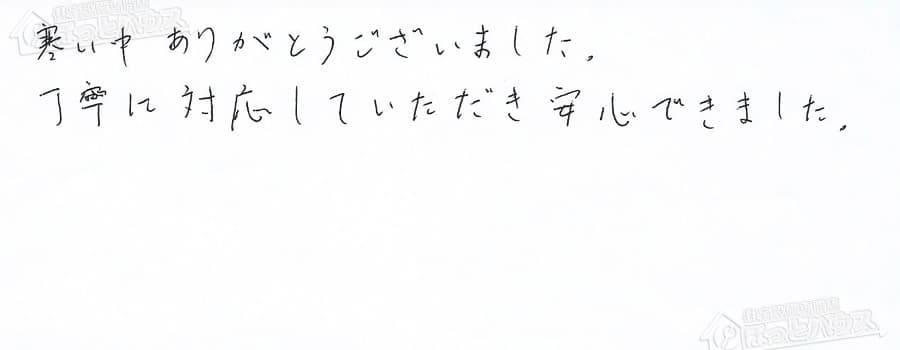 寒い中 ありがとうございました。
丁寧に 対応していただき 安心できました。
ほっとハウス